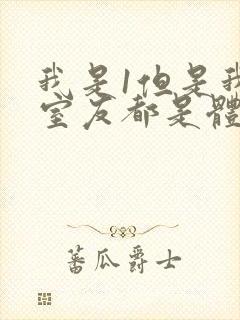 我是1但是我
室友都是體
蕃瓜爵士